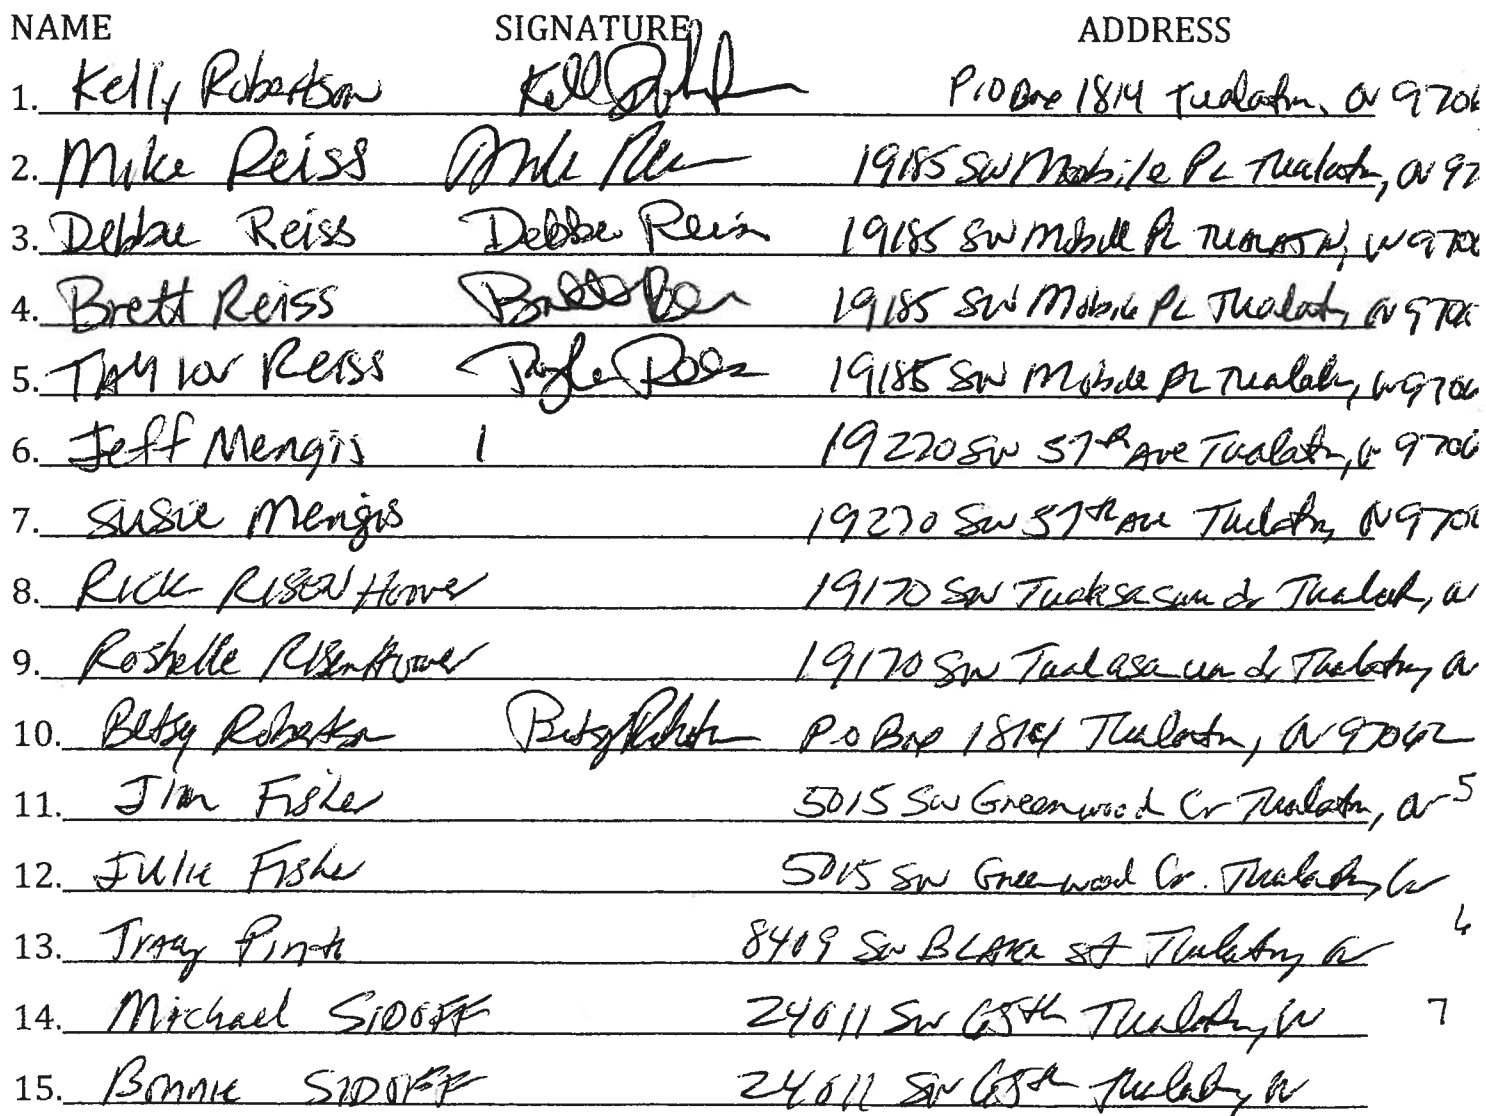 NAME SIGNATURE ADDRESS
1. Kelly Robertson P.O Box 1814 Tualatin, Or 9706
2. Mike Reiss Mike Reiss 19185 SW Mobile PL Tualatin, Or 97
3. Debbie Reiss Debbie Reiss 19185 SW Mobile PL TUALATIN, Or 9706
4. Brett Reiss Brett Reiss 19185 SW Mobile PL Tualatin, Or 9706
5. TAYlor Reiss Taylor Reiss 19185 SW Mobile PL Tualatin, Or 9706
6. Jeff Mengis 19270 SW 57th Ave Tualatin, Or 9706
7. Susie Mengis 19270 SW 57th Ave Tualatin, Or 9706
8. RICK RISENHoover 19170 SW dr Tualatin, Or
9. Roshelle RISENHoover 19170 SW dr Tualatin, Or
10. Betsy Robertson Betsy Robertson P.O Box 1814 Tualatin, Or 97062
11. Jim Fisher 5015 SW Greenwood Cr Tualatin, Or 5
12. Julie Fisher 5015 SW Greenwood Cr. Tualatin, Or
13. Tracy 8409 SW BLAKE st Tualatin, Or 6
14. Michael SIDOFF 24011 SW 65th Tualatin, Or 7
15. Bonnie SIDOFF 24011 SW 65th Tualatin, Or